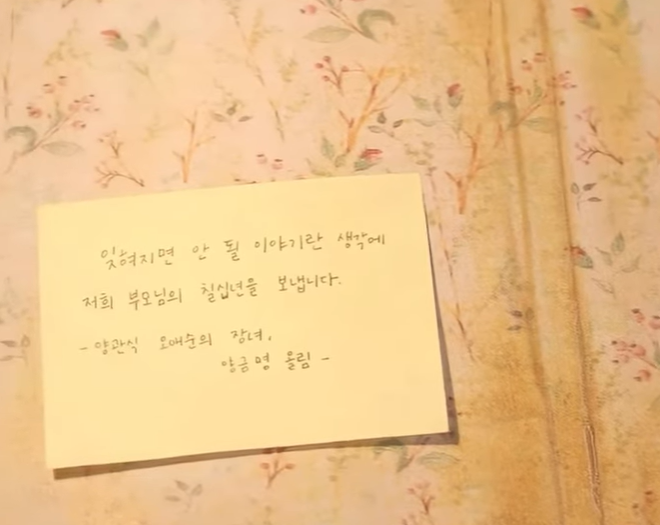 잊혀지면 안 될 이야기란 생각에
저희 부모님의 칠십년을 보냅니다.
- 양관식 오애순의 장녀,
양금명 올림 -